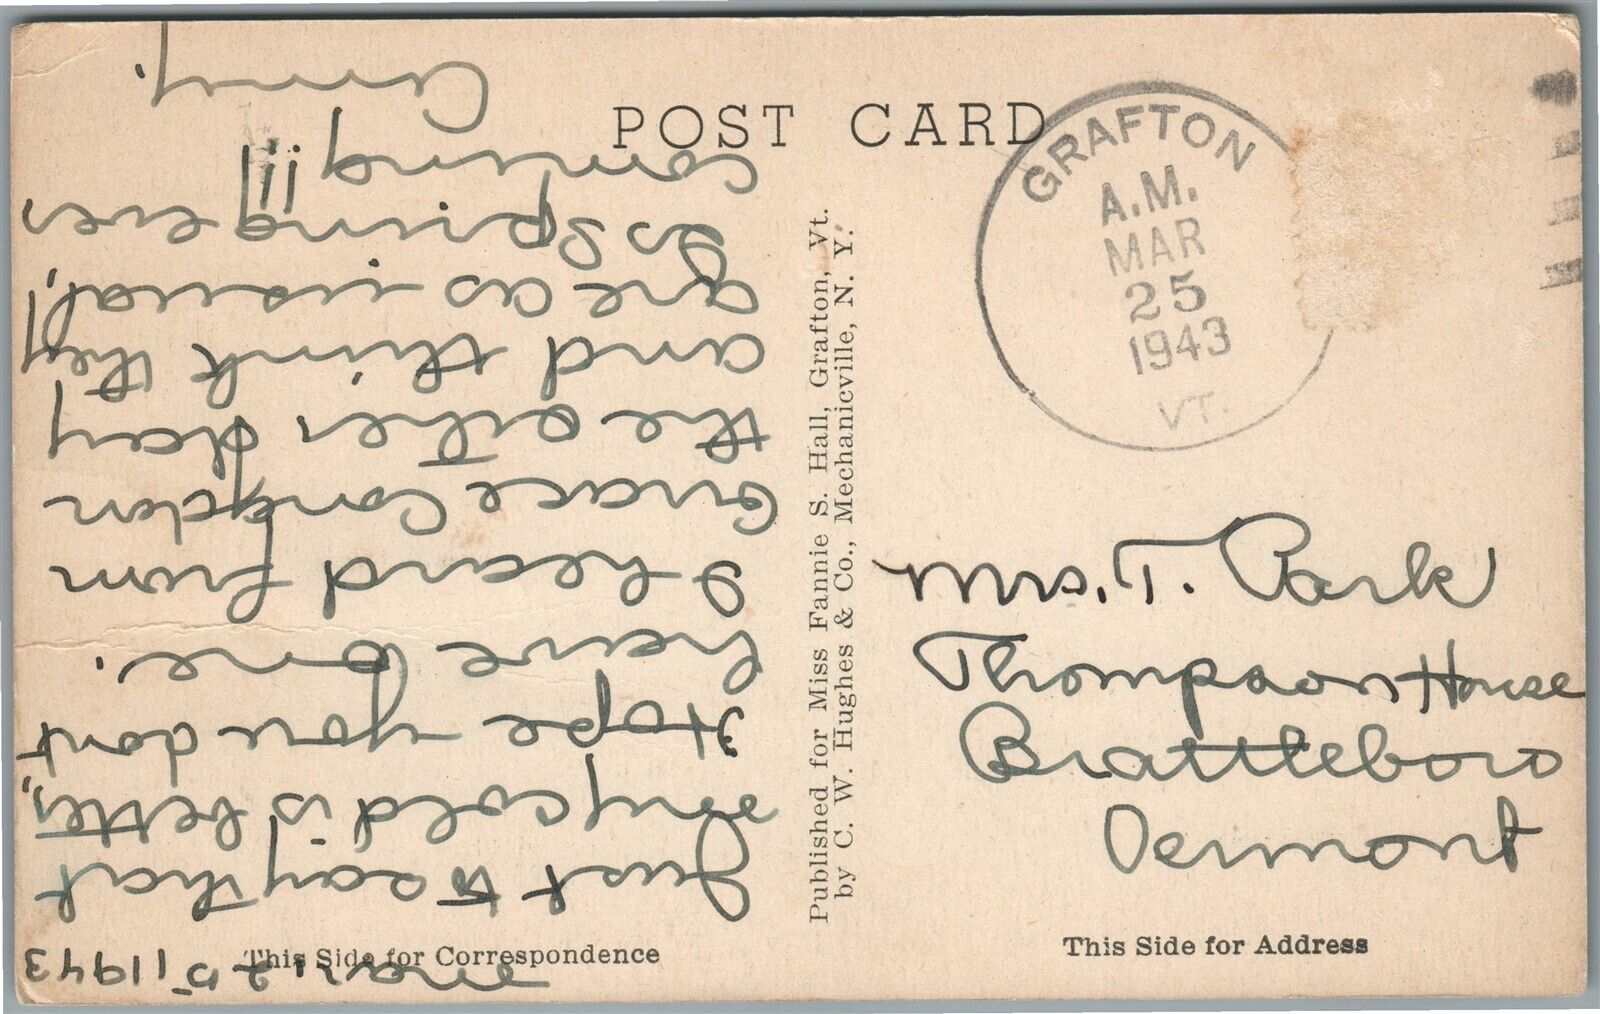 POST CARD
GRAFTON
A.M.
MAR
25
1943
VT.
Mar. 25, 1943
Just to say that
my cold is better,
Hope you don't
have one.
I heard from
Grace Congdon
the other day
and think they
are as usual,
Is Spring ever
coming!!!
Published for Miss Fannie S. Hall, Grafton, Vt.
by C. W. Hughes & Co., Mechanicville, N. Y.
Mrs. T. Park
Thompson House
Brattleboro
Vermont
This Side for Correspondence
This Side for Address